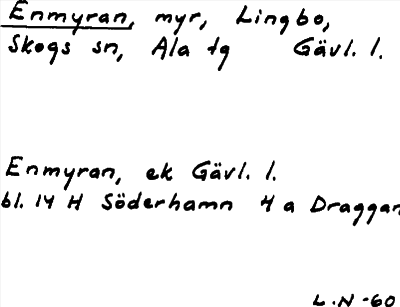 Enmyran, myr, Lingbo,
Skogs sn, Ala tg Gävl. l.
Enmyran, ek Gävl. l.
bl. 14 H Söderhamn 4 a Draggan
L.N -60